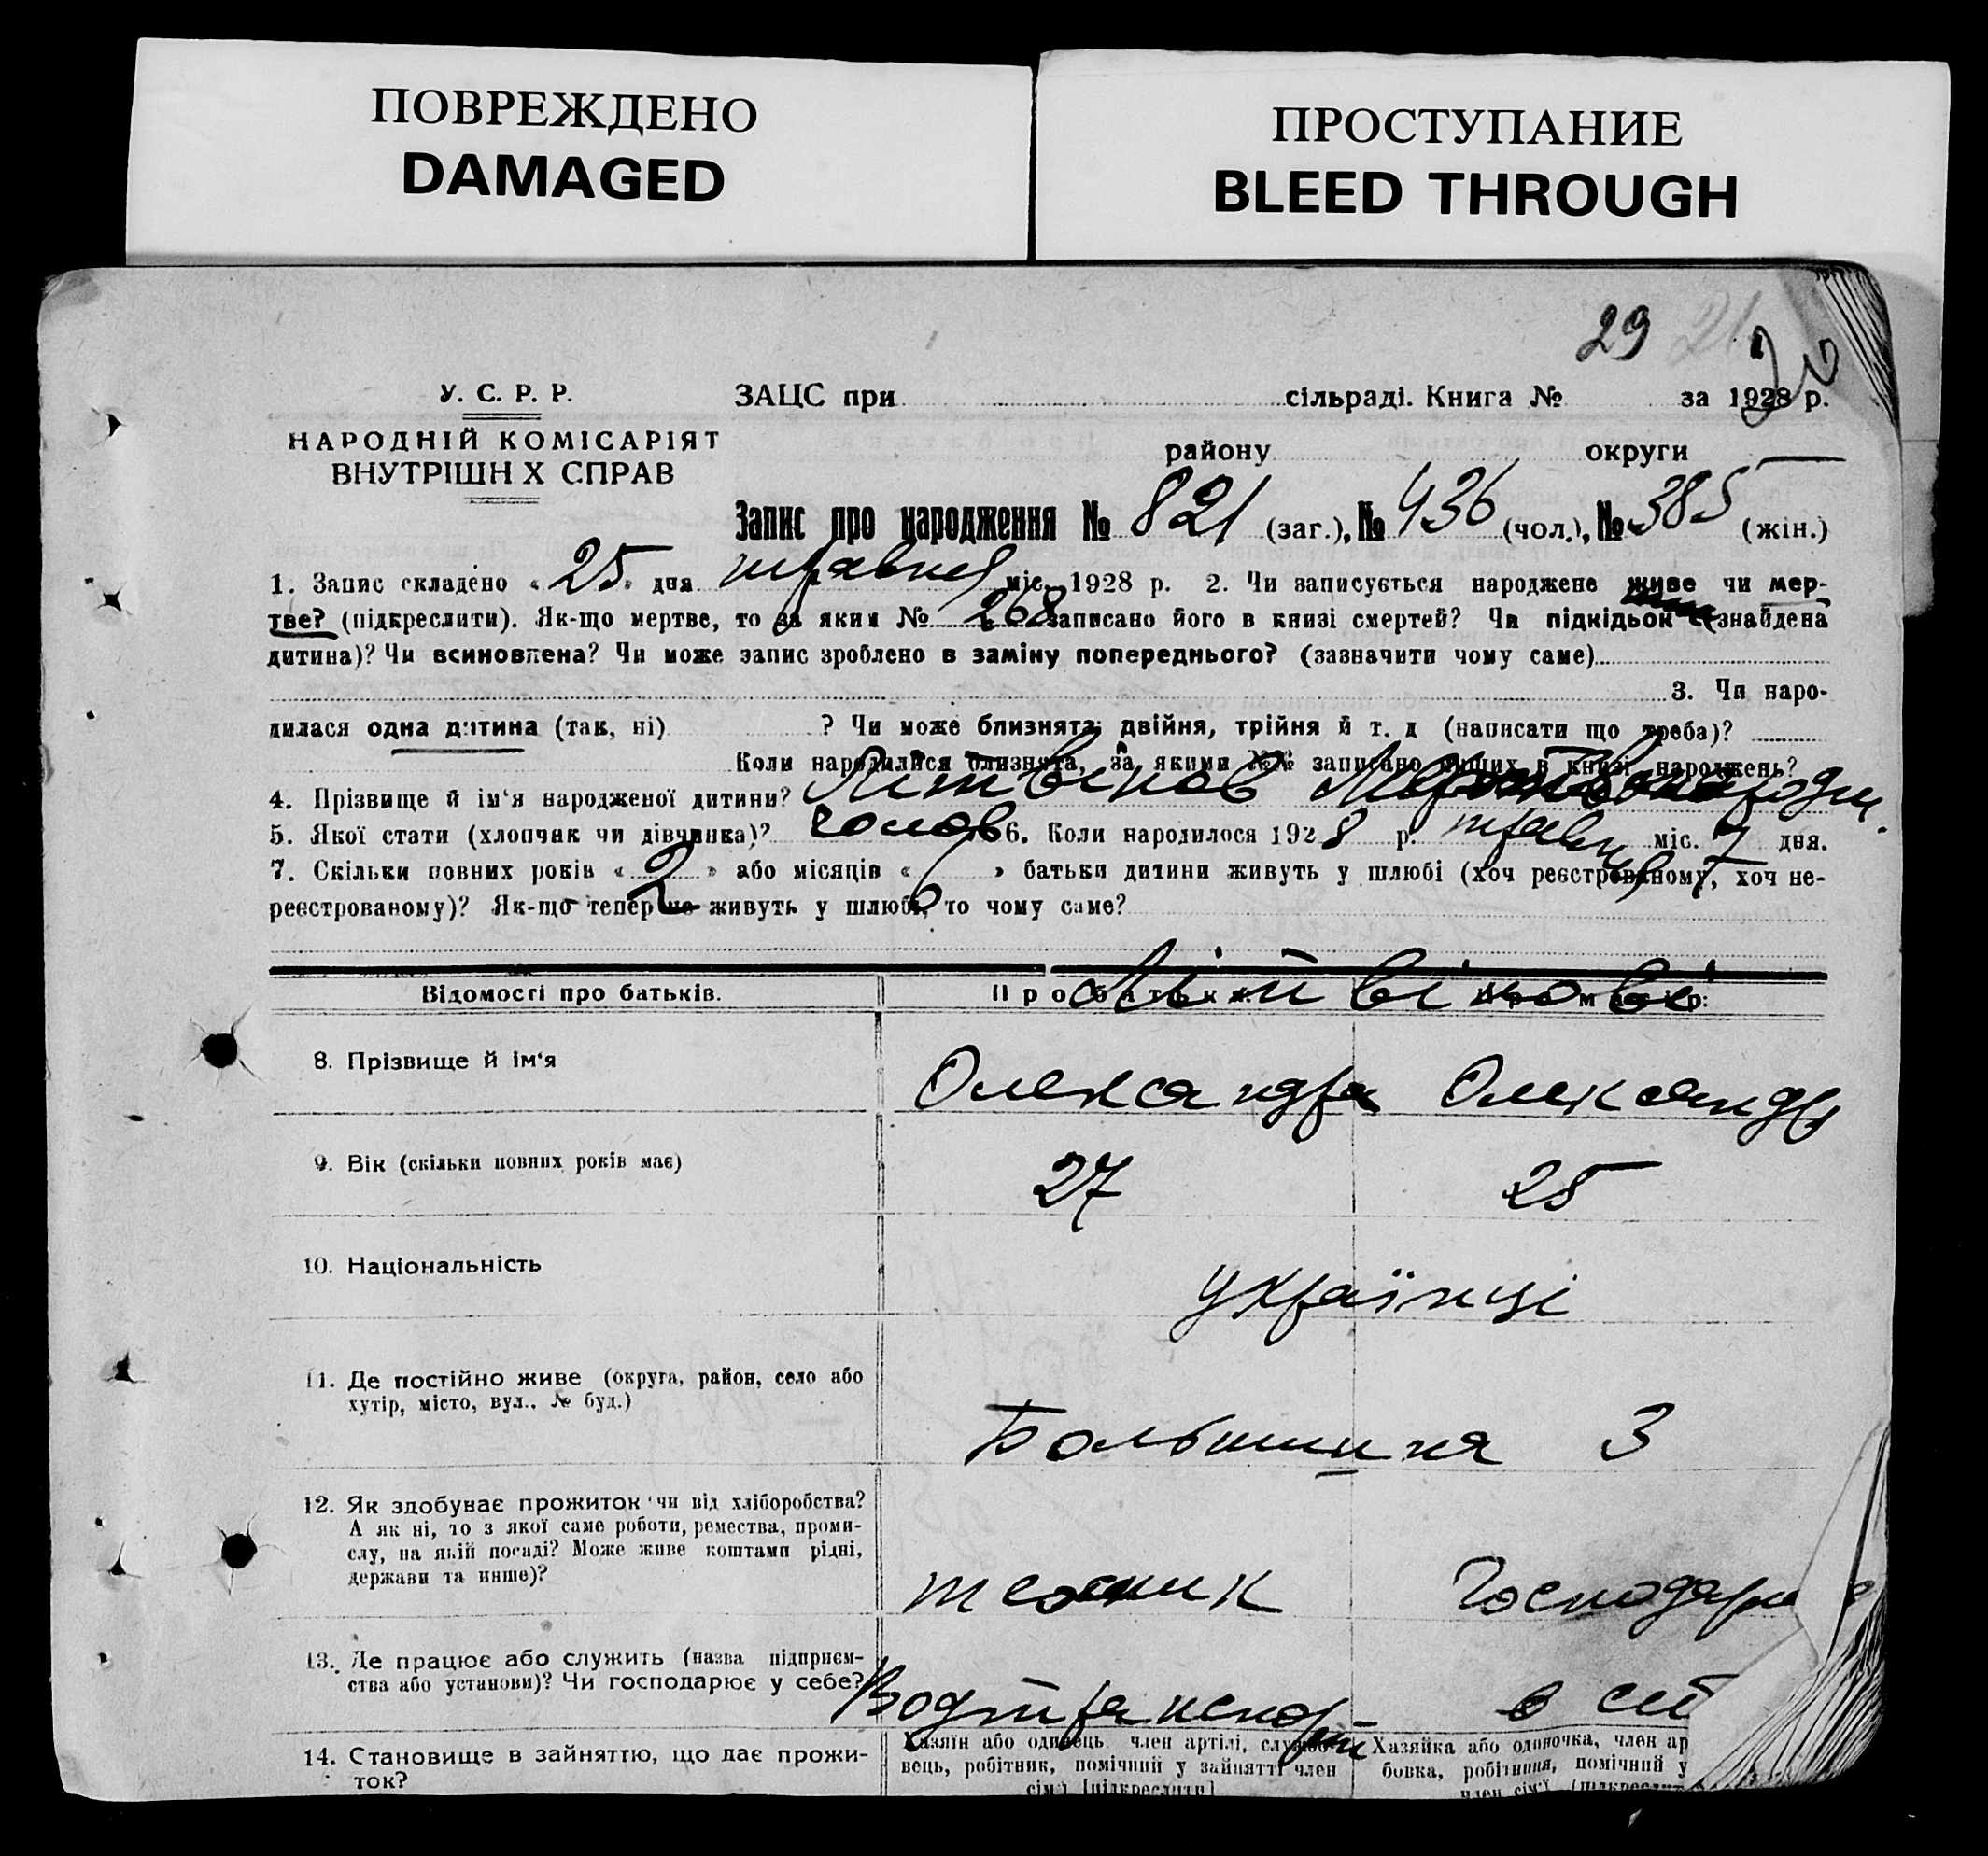 ПОВРЕЖДЕНО
DAMAGED
ПРОСТУПАНИЕ
BLEED THROUGH
29 21
20
У. С. Р. Р.
НАРОДНІЙ КОМІСАРІЯТ
ВНУТРІШН Х СПРАВ
ЗАЦС при сільраді. Книга № за 1928 р.
району округи
Запис про народження № 821 (заг.), № 436 (чол.), № 385 (жін.)
1. Запис складено « 25 » дня травня міс. 1928 р. 2. Чи записується народжене живе чи мер-
тве? (підкреслити). Як-що мертве, то за яким № 268 записано його в книзі смертей? Чи підкідьок (знайдена
дитина)? Чи всиновлена? Чи може запис зроблено в заміну попереднього? (зазначити чому саме)
3. Чи наро-
дилася одна дитина (так, ні) ? Чи може близнята: двійня, трійня й т. д (написати що треба)?
Коли народилися близнята, за якими №№ записано инших в книзі народжень?
4. Прізвище й ім‘я народженої дитини? Літвінов
5. Якої стати (хлопчик чи дівчинка)? чолов 6. Коли народилося 1928 р. травня міс. 7 дня.
7. Скільки повних років « 2 » або місяців « » батьки дитини живуть у шлюбі (хоч реєстрованому, хоч не-
реєстрованому)? Як-що тепер не живуть у шлюбі, то чому саме?
Відомості про батьків. Про батька: Про матір:
Літвінові
8. Прізвище й ім‘я Олександр Олександра
9. Вік (скільки повних років має) 27 25
10. Національність українці
11. Де постійно живе (округа, район, село або
хутір, місто, вул., № буд.)
3
12. Як здобуває прожиток чи від хліборобства?
А як ні, то з якої саме роботи, ремества, проми-
слу, на якій посаді? Може живе коштами рідні,
держави та инше)?
13. Де працює або служить (назва підприєм-
ства або установи)? Чи господарює у себе?
Водтранспорт в сем
14. Становище в зайняттю, що дає прожи-
ток?
Хазяїн або одинець член артілі, службо-
вець, робітник, помічний у зайнятті член
сім‘ї [підкреслити]
Хазяйка або одиночка, член ар
бовка, робітниця, помічний у
член сім‘ї (підкреслит